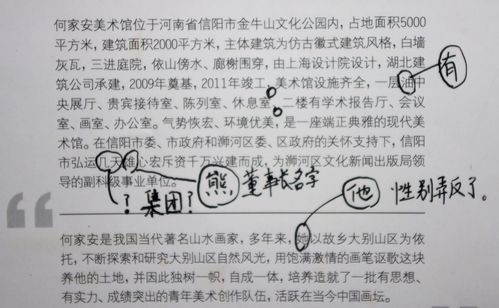 何家安美术馆位于河南省信阳市金牛山文化公园内，占地面积5000
平方米，建筑面积2000平方米，主体建筑为仿古徽式建筑风格，白墙
灰瓦，三进庭院，依山傍水、廊榭围穿，由上海设计院设计，湖北建
筑公司承建，2009年奠基，2011年竣工。美术馆设施齐全，一层油中
有
央展厅、贵宾接待室、陈列室、休息室。二楼有学术报告厅、会议
室、画室、办公室。气势恢宏、环境优美，是一座端正典雅的现代美
术馆。在信阳市委、市政府和浉河区委、区政府的关怀支持下，信阳
市弘运几天雄心宏斥资千万兴建而成，为浉河区文化新闻出版局领
导的副科级事业单位。
熊 董事长名字
？集团？
他 性别弄反了。
何家安是我国当代著名山水画家，多年来，她以故乡大别山区为依
托，不断探索和研究大别山区自然风光，用饱满激情的画笔讴歌这块
养他的土地，并因此独树一帜，自成一体，培养造就了一批有思想、
有实力、成绩突出的青年美术创作队伍，活跃在当今中国画坛。